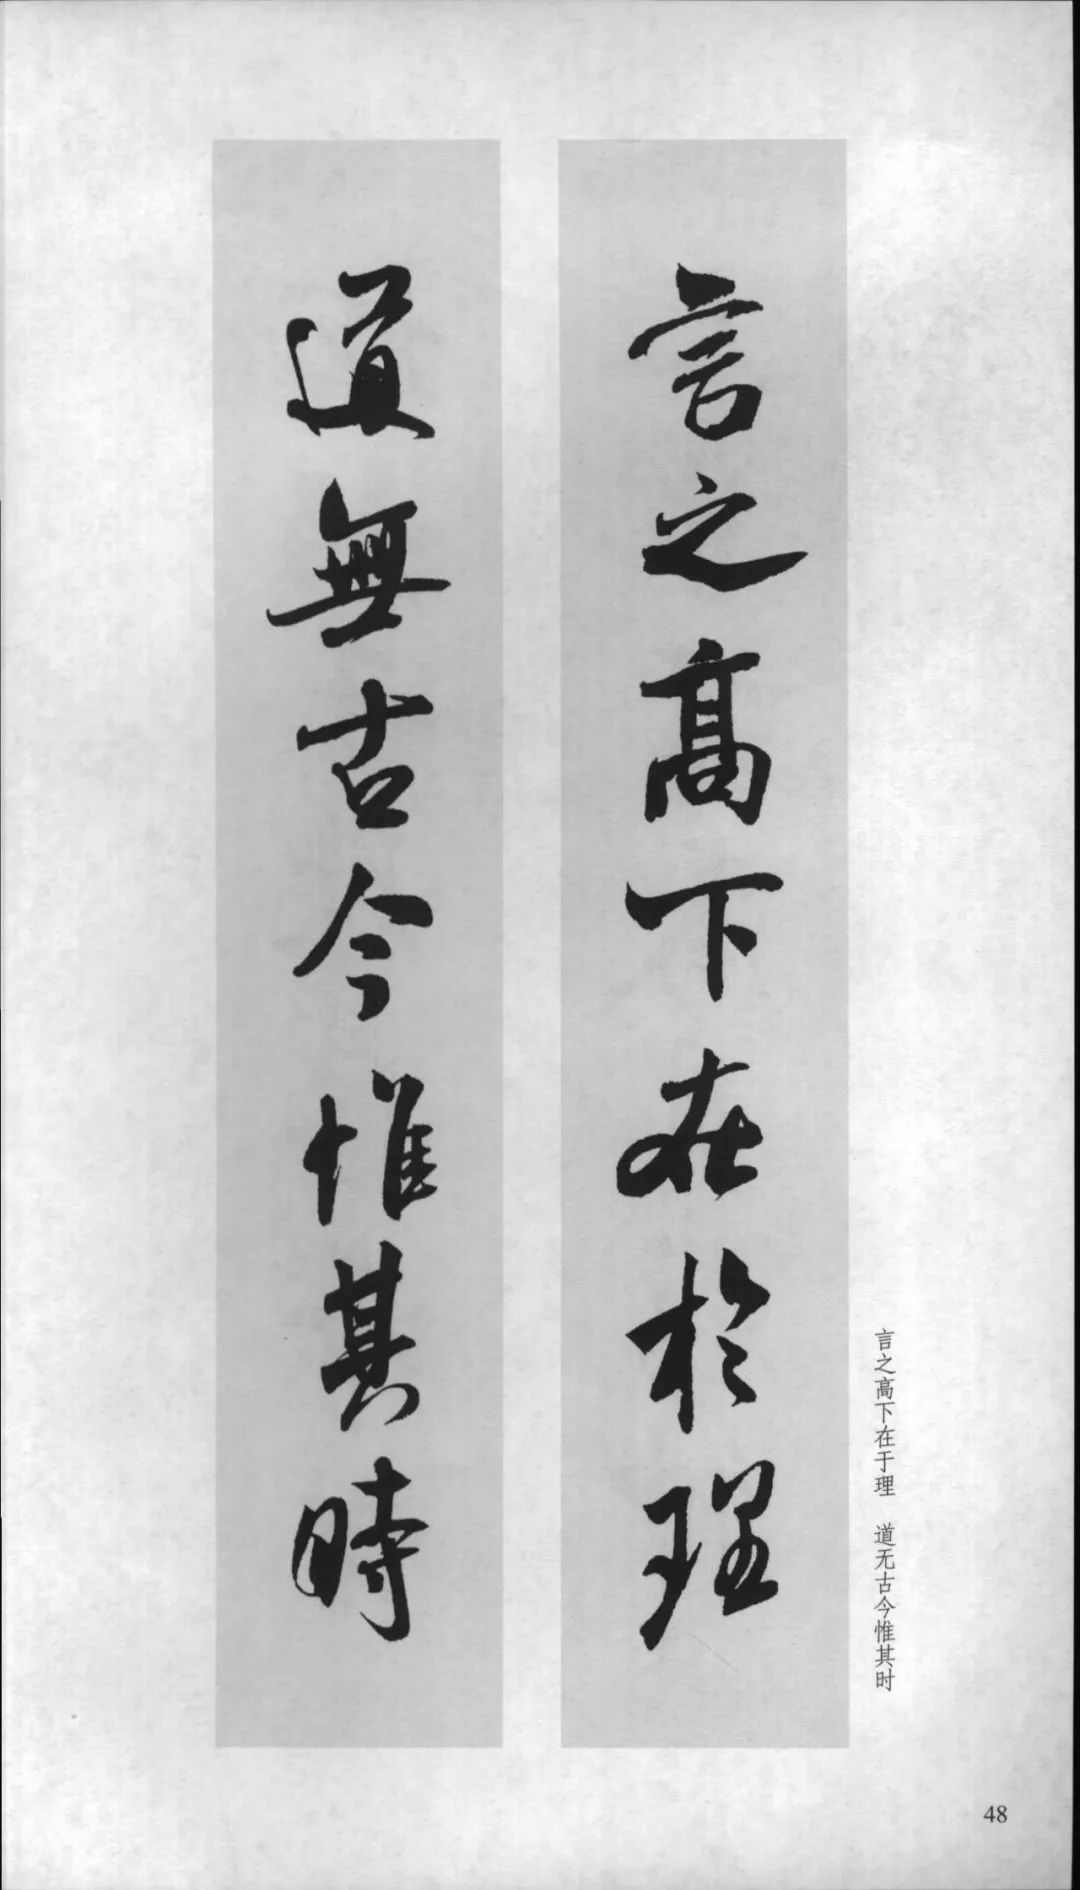 言之高下在於理
道無古今惟其時
言之高下在于理　道无古今惟其时
48